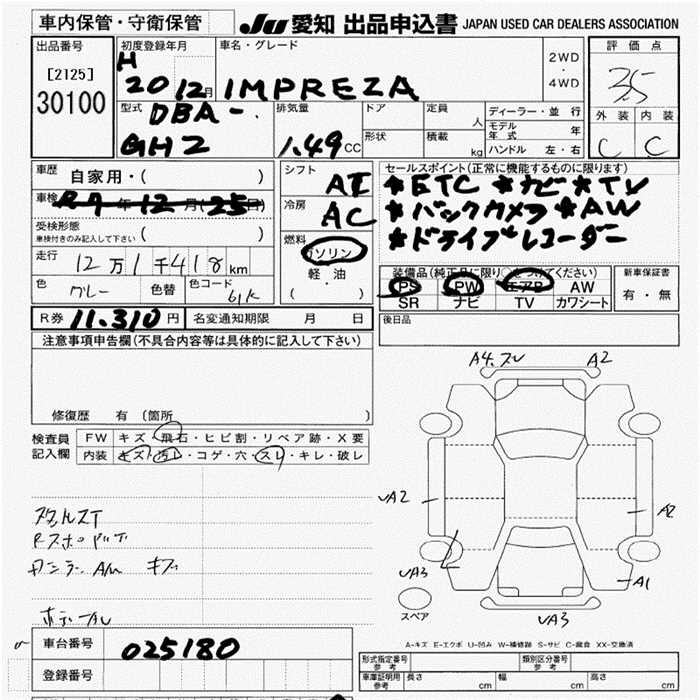 車内保管・守衛保管
JU 愛知 出品申込書 JAPAN USED CAR DEALERS ASSOCIATION
出品番号
[2125]
30100
初度登録年月
H
20 12月
車名・グレード
IMPREZA
2WD
・
4WD
評価点
3.5
外装 内装
C C
型式
DBA-
GH2
排気量
1.49 CC
ドア
形状
定員
人
積載
kg
ディーラー・並行
モデル年式 年
ハンドル 左・右
車歴
自家用・( )
車検
R7年12月(25日)
受検形態
車検付きのみ記入して下さい ( )
走行
12万1千418km
色
グレー
色替
色コード
61K
シフト
AT
冷房
AC
燃料
ガソリン
・
軽油
( )
セールスポイント(正常に機能するものに限ります)
*ETC *ナビ *TV
*バックカメラ *AW
*ドライブレコーダー
装備品(純正品に限り○をつけてください)
PS PW エアB AW
SR ナビ TV カワシート
新車保証書
有・無
R券 11.310円 名変通知期限 月 日
後日品
注意事項申告欄(不具合内容等は具体的に記入して下さい)
修復歴 有 (箇所 )
検査員
記入欄
FW キズ・飛石・ヒビ割・リペア跡・X要
内装 キズ・汚レ・コゲ・穴・スレ・キレ・破レ
A4.スレ A2
UA2
A2
UA3
A1
UA3
スペア
A-キズ E-エクボ U-凹み W-補修跡 S-サビ C-腐食 XX-交換済
車台番号 025180
登録番号
形式指定番号
参考
類別区分番号
参考
車庫証明用
参考
長さ cm 幅 cm 高さ cm